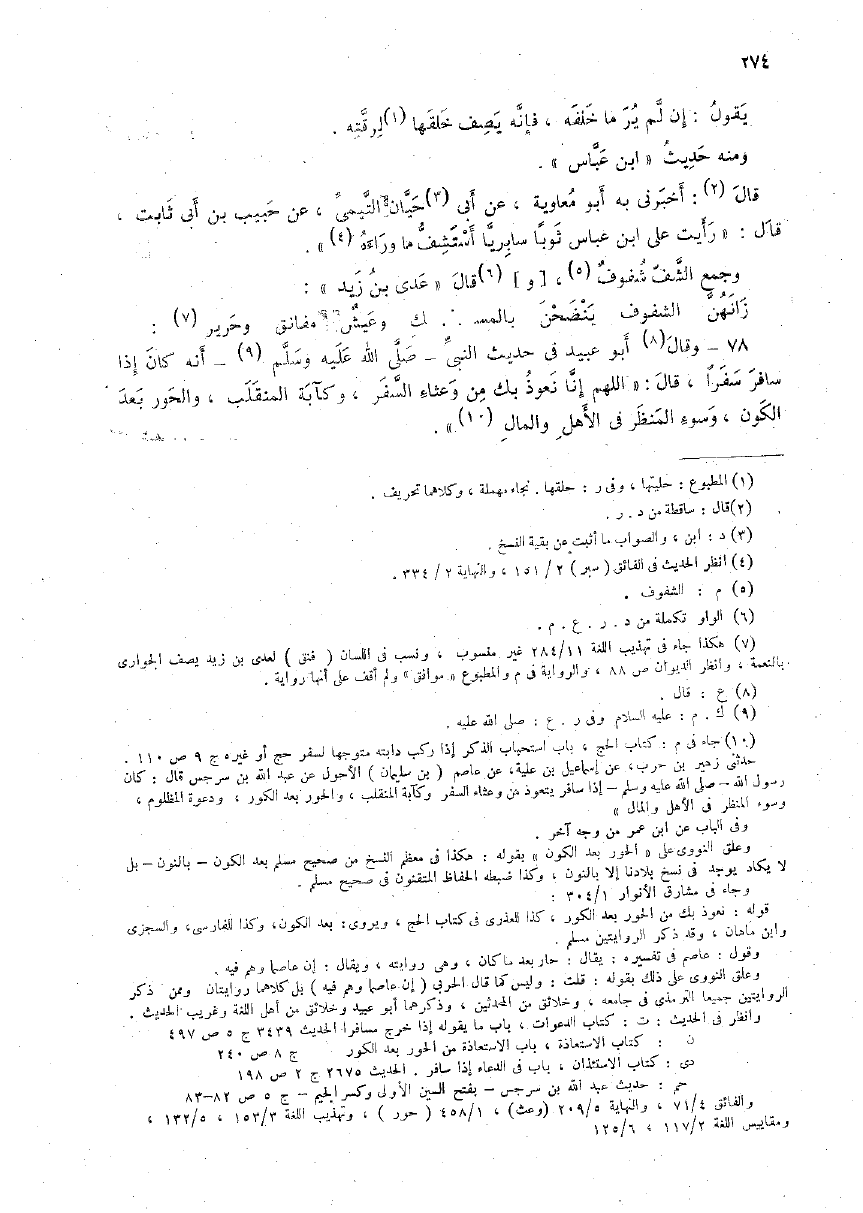 ٢٧٤
يَقولُ : إن لَّم يُرَ ما خَلفَه ، فإنَّه يَصِف خَلقَها (١) لِرقَّتِه .
ومنه حَدِيثُ « ابن عَبَّاس » .
قالَ (٢) : أخبَرنى به أبو مُعاوية ، عن أبى (٣) حَيَّان التَّيمىِّ ، عن حَبيب بن أبى ثَابت ،
قالَ : « رَأيت على ابن عباس ثَوبًا سابِريًّا أَسْتَشِفُّ ما ورَاءَهُ (٤) » .
وجمع الشَّفّ شُفوفٌ (٥) ، [ و ] (٦) قالَ « عَدى بنُ زَيد » :
زَانَهُنَّ الشفوف يَنْضَحْنَ بالمسـ ك وعَيشٌ مفانق وحَرير (٧) :
٧٨ – وقالَ (٨) أبو عبيد فى حديث النبىِّ – صَلَّى الله عَلَيه وَسَلَّم (٩) – أنه كانَ إذا
سافرَ سَفَراً ، قالَ : « اللهم إنَّا نَعوذُ بك مِن وَعثاءِ السَّفَر ، وكآبَة المنقَلَب ، والحَور بَعدَ
الكَون ، وَسوءِ المَنظَر فى الأَهلِ والمالِ (١٠) » .
(١) المطبوع : حليتها ، وفى ر : حلقها . بحاء مهملة ، وكلاهما تحريف .
(٢) قال : ساقطة من د . ر .
(٣) د : ابن ، والصواب ما أثبت عن بقية النسخ .
(٤) انظر الحديث فى الفائق ( سبر ) ٢ / ١٥١ ، والنهاية ٢ / ٣٣٤ .
(٥) م : الشفوف .
(٦) الواو تكملة من د . ر . ع . م .
(٧) هكذا جاء فى تهذيب اللغة ٢٨٤/١١ غير منسوب ، ونسب فى اللسان ( فنق ) لعدى بن زيد يصف الجوارى
بالنعمة ، وانظر الديوان ص ٨٨ ، والرواية فى م والمطبوع « موانق » ولم أقف على أنها رواية .
(٨) ع : قال .
(٩) ك . م : عليه السلام وفى ر . ع : صلى الله عليه .
(١٠) جاء فى م : كتاب الحج ، باب استحباب الذكر إذا ركب دابته متوجها لسفر حج أو غيره ج ٩ ص ١١٠ .
حدثنى زهير بن حرب، عن إسماعيل بن علية، عن عاصم ( بن سليمان ) الأحول عن عبد الله بن سرجس قال : كان
رسول الله – صلى الله عليه وسلم – إذا سافر يتعوذ من وعثاء السفر وكآبة المنقلب ، والحور بعد الكور ، ودعوة المظلوم ،
وسوء المنظر فى الأهل والمال »
وفى الباب عن ابن عمر من وجه آخر .
وعلق النووى على « الحور بعد الكون » بقوله : هكذا فى معظم النسخ من صحيح مسلم بعد الكون – بالنون – بل
لا يكاد يوجد فى نسخ بلادنا إلا بالنون ، وكذا ضبطه الحفاظ المتقنون فى صحيح مسلم .
وجاء فى مشارق الأنوار ٣٠٤/١ :
قوله : نعوذ بك من الحور بعد الكور ، كذا للعذرى فى كتاب الحج ، ويروى: بعد الكون، وكذا للفارسى، والسجزى
وابن ماهان ، وقد ذكر الروايتين مسلم .
وقول : عاصم فى تفسيره : يقال : حار بعد ما كان ، وهى روايته ، ويقال : إن عاصما وهم فيه .
وعلق النووى على ذلك بقوله : قلت : وليس كما قال الحربى ( إن عاصما وهم فيه ) بل كلاهما روايتان وممن ذكر
الروايتين جميعا الترمذى فى جامعه ، وخلائق من المحدثين ، وذكرهما أبو عبيد وخلائق من أهل اللغة وغريب الحديث .
وانظر فى الحديث : ت : كتاب الدعوات ، باب ما يقوله إذا خرج مسافرا الحديث ٣٤٣٩ ج ٥ ص ٤٩٧
ن : كتاب الاستعاذة ، باب الاستعاذة من الحور بعد الكور ج ٨ ص ٢٤٠
دى : كتاب الاستئذان ، باب فى الدعاء إذا سافر . الحديث ٢٦٧٥ ج ٢ ص ١٩٨
حم : حديث عبد الله بن سرجس – بفتح السين الأولى وكسر الجيم – ج ٥ ص ٨٢–٨٣
والفائق ٧١/٤ ، والنهاية ٢٠٩/٥ (وعث) ، ٤٥٨/١ ( حور ) ، وتهذيب اللغة ١٥٣/٣ ، ١٣٢/٥ ،
ومقاييس اللغة ١١٧/٢ ، ١٢٥/٦